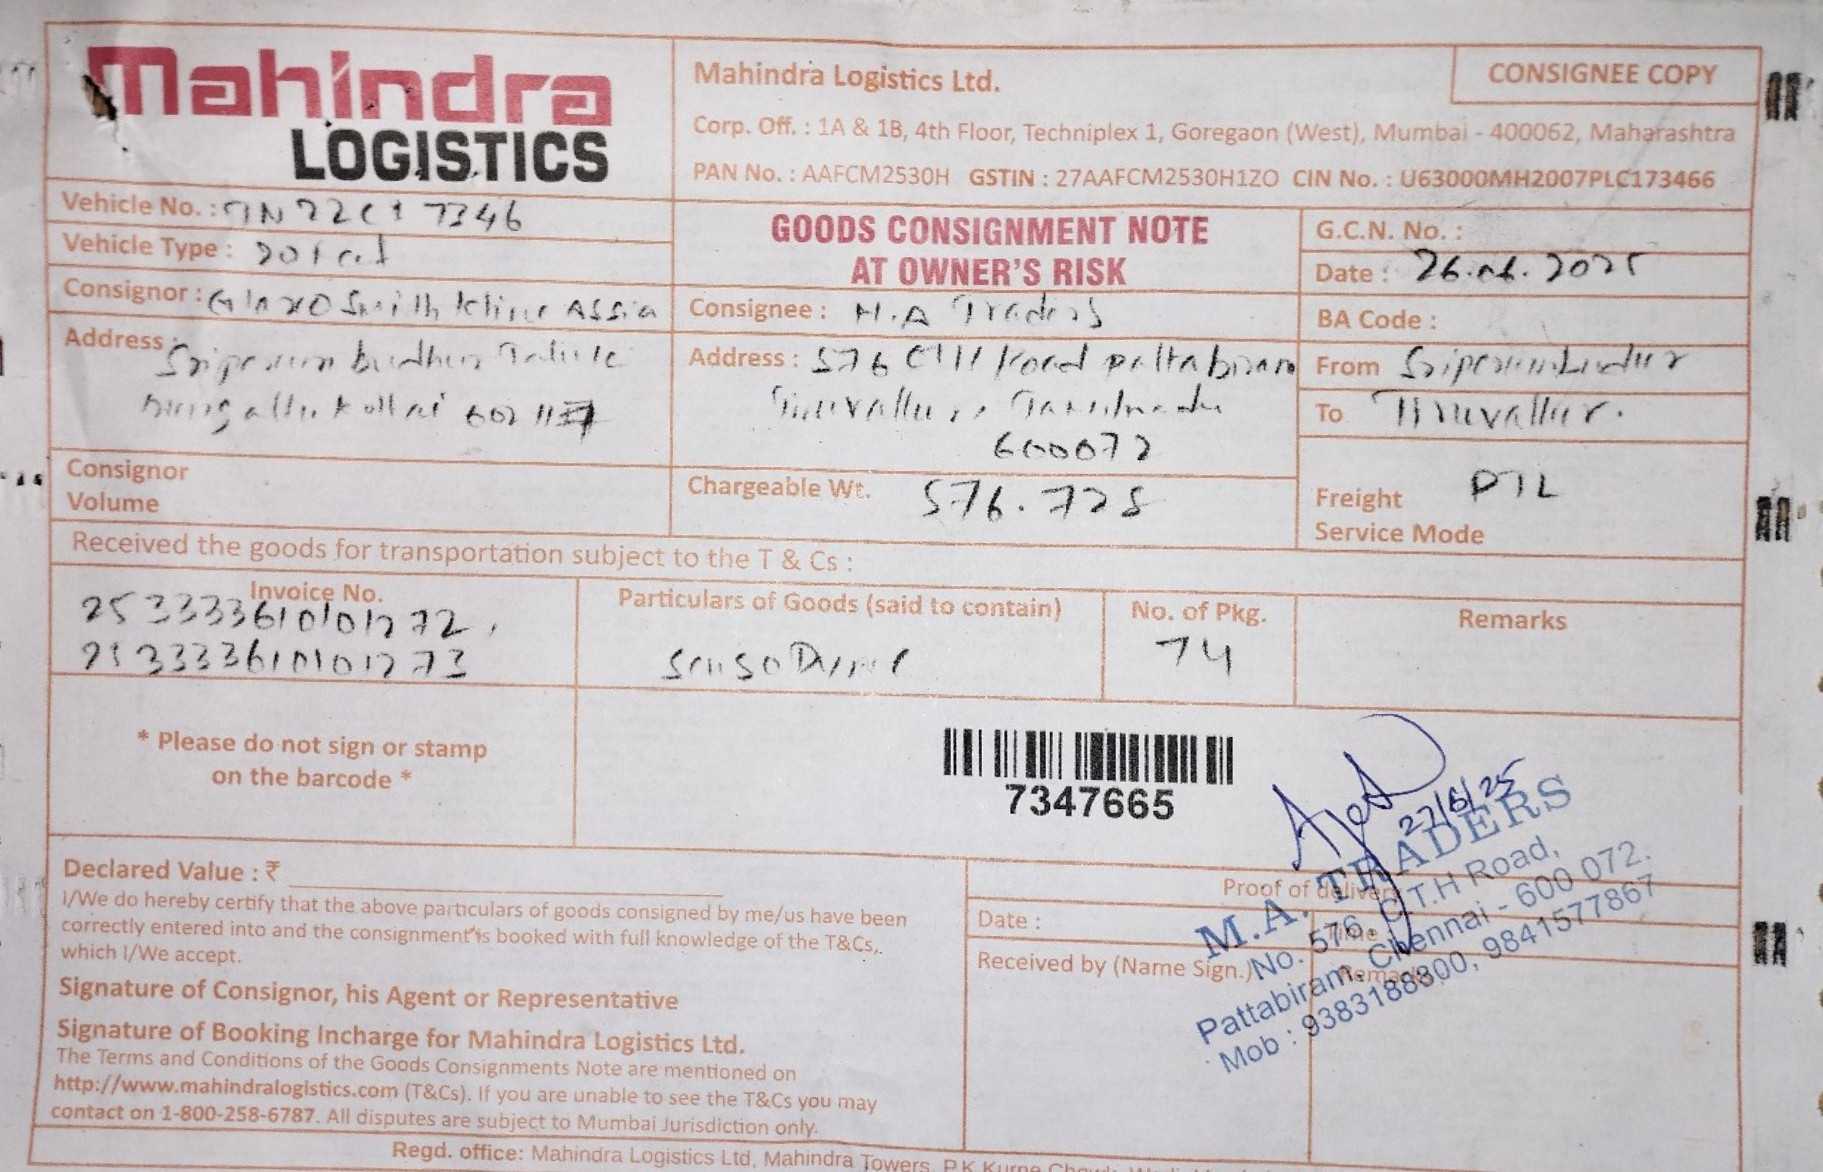 Mahindra
LOGISTICS
Mahindra Logistics Ltd.
CONSIGNEE COPY
Corp. Off. : 1A & 1B, 4th Floor, Techniplex 1, Goregaon (West), Mumbai - 400062, Maharashtra
PAN No. : AAFCM2530H GSTIN : 27AAFCM2530H1ZO CIN No. : U63000MH2007PLC173466
Vehicle No. : TN22C1 7346
Vehicle Type :
GOODS CONSIGNMENT NOTE
AT OWNER'S RISK
G.C.N. No. :
Date : 26.06.2025
Consignor : Glaxo Smith Kline Assia
Consignee : M.A Traders
BA Code :
Address :
Address : 576 CTH Road pattabiram
Tiruvallur, Tamilnadu
600072
From Sriperumbudur
To Tiruvallur.
Consignor
Volume
Chargeable Wt. 576.728
Freight PTL
Service Mode
Received the goods for transportation subject to the T & Cs :
Invoice No.
253333610101272,
253333610101273
Particulars of Goods (said to contain)
Sensodyne
No. of Pkg.
74
Remarks
* Please do not sign or stamp
on the barcode *
7347665
27/6/25
M.A. TRADERS
No. 576, C.T.H Road,
Pattabiram, Chennai - 600 072.
Mob : 9383188300, 9841577867
Declared Value : ₹
I/We do hereby certify that the above particulars of goods consigned by me/us have been
correctly entered into and the consignment's booked with full knowledge of the T&Cs,
which I/We accept.
Signature of Consignor, his Agent or Representative
Signature of Booking Incharge for Mahindra Logistics Ltd.
The Terms and Conditions of the Goods Consignments Note are mentioned on
http://www.mahindralogistics.com (T&Cs). If you are unable to see the T&Cs you may
contact on 1-800-258-6787. All disputes are subject to Mumbai Jurisdiction only.
Proof of delivery
Date :
Time
Received by (Name Sign.)
Remarks
Regd. office: Mahindra Logistics Ltd, Mahindra Towers, P.K Kurne